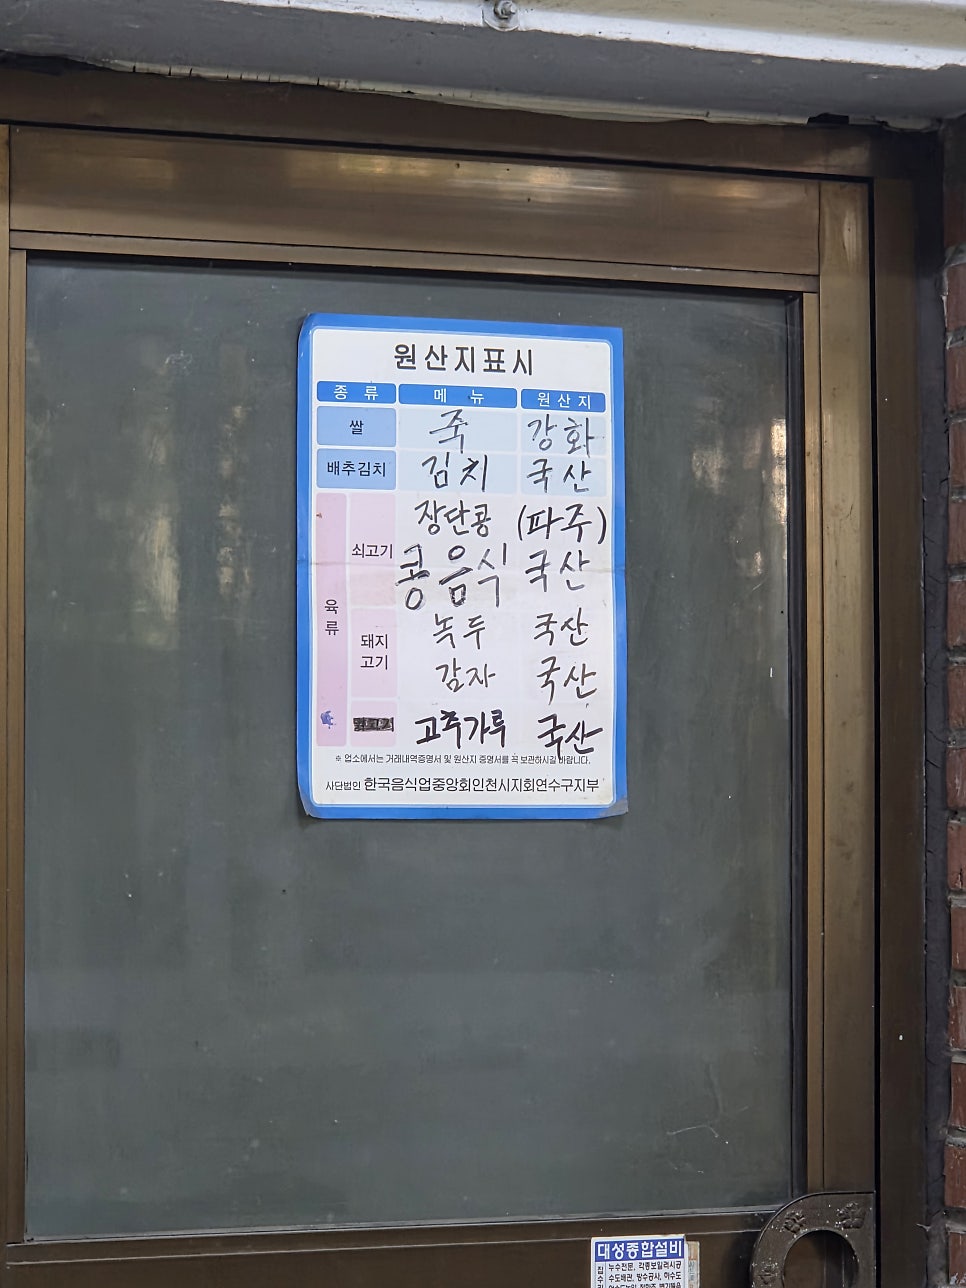 원산지표시
종 류 메 뉴 원산지
쌀 죽 강화
배추김치 김치 국산
장단콩 (파주)
쇠고기 콩음식 국산
육류
녹두 국산
돼지고기 감자 국산
고추가루 국산
※ 업소에서는 거래내역증명서 및 원산지 증명서를 꼭 보관하시길 바랍니다.
사단법인 한국음식업중앙회인천시지회연수구지부
대성종합설비
누수전문, 각종보일러시공
수도배관, 방수공사, 하수도